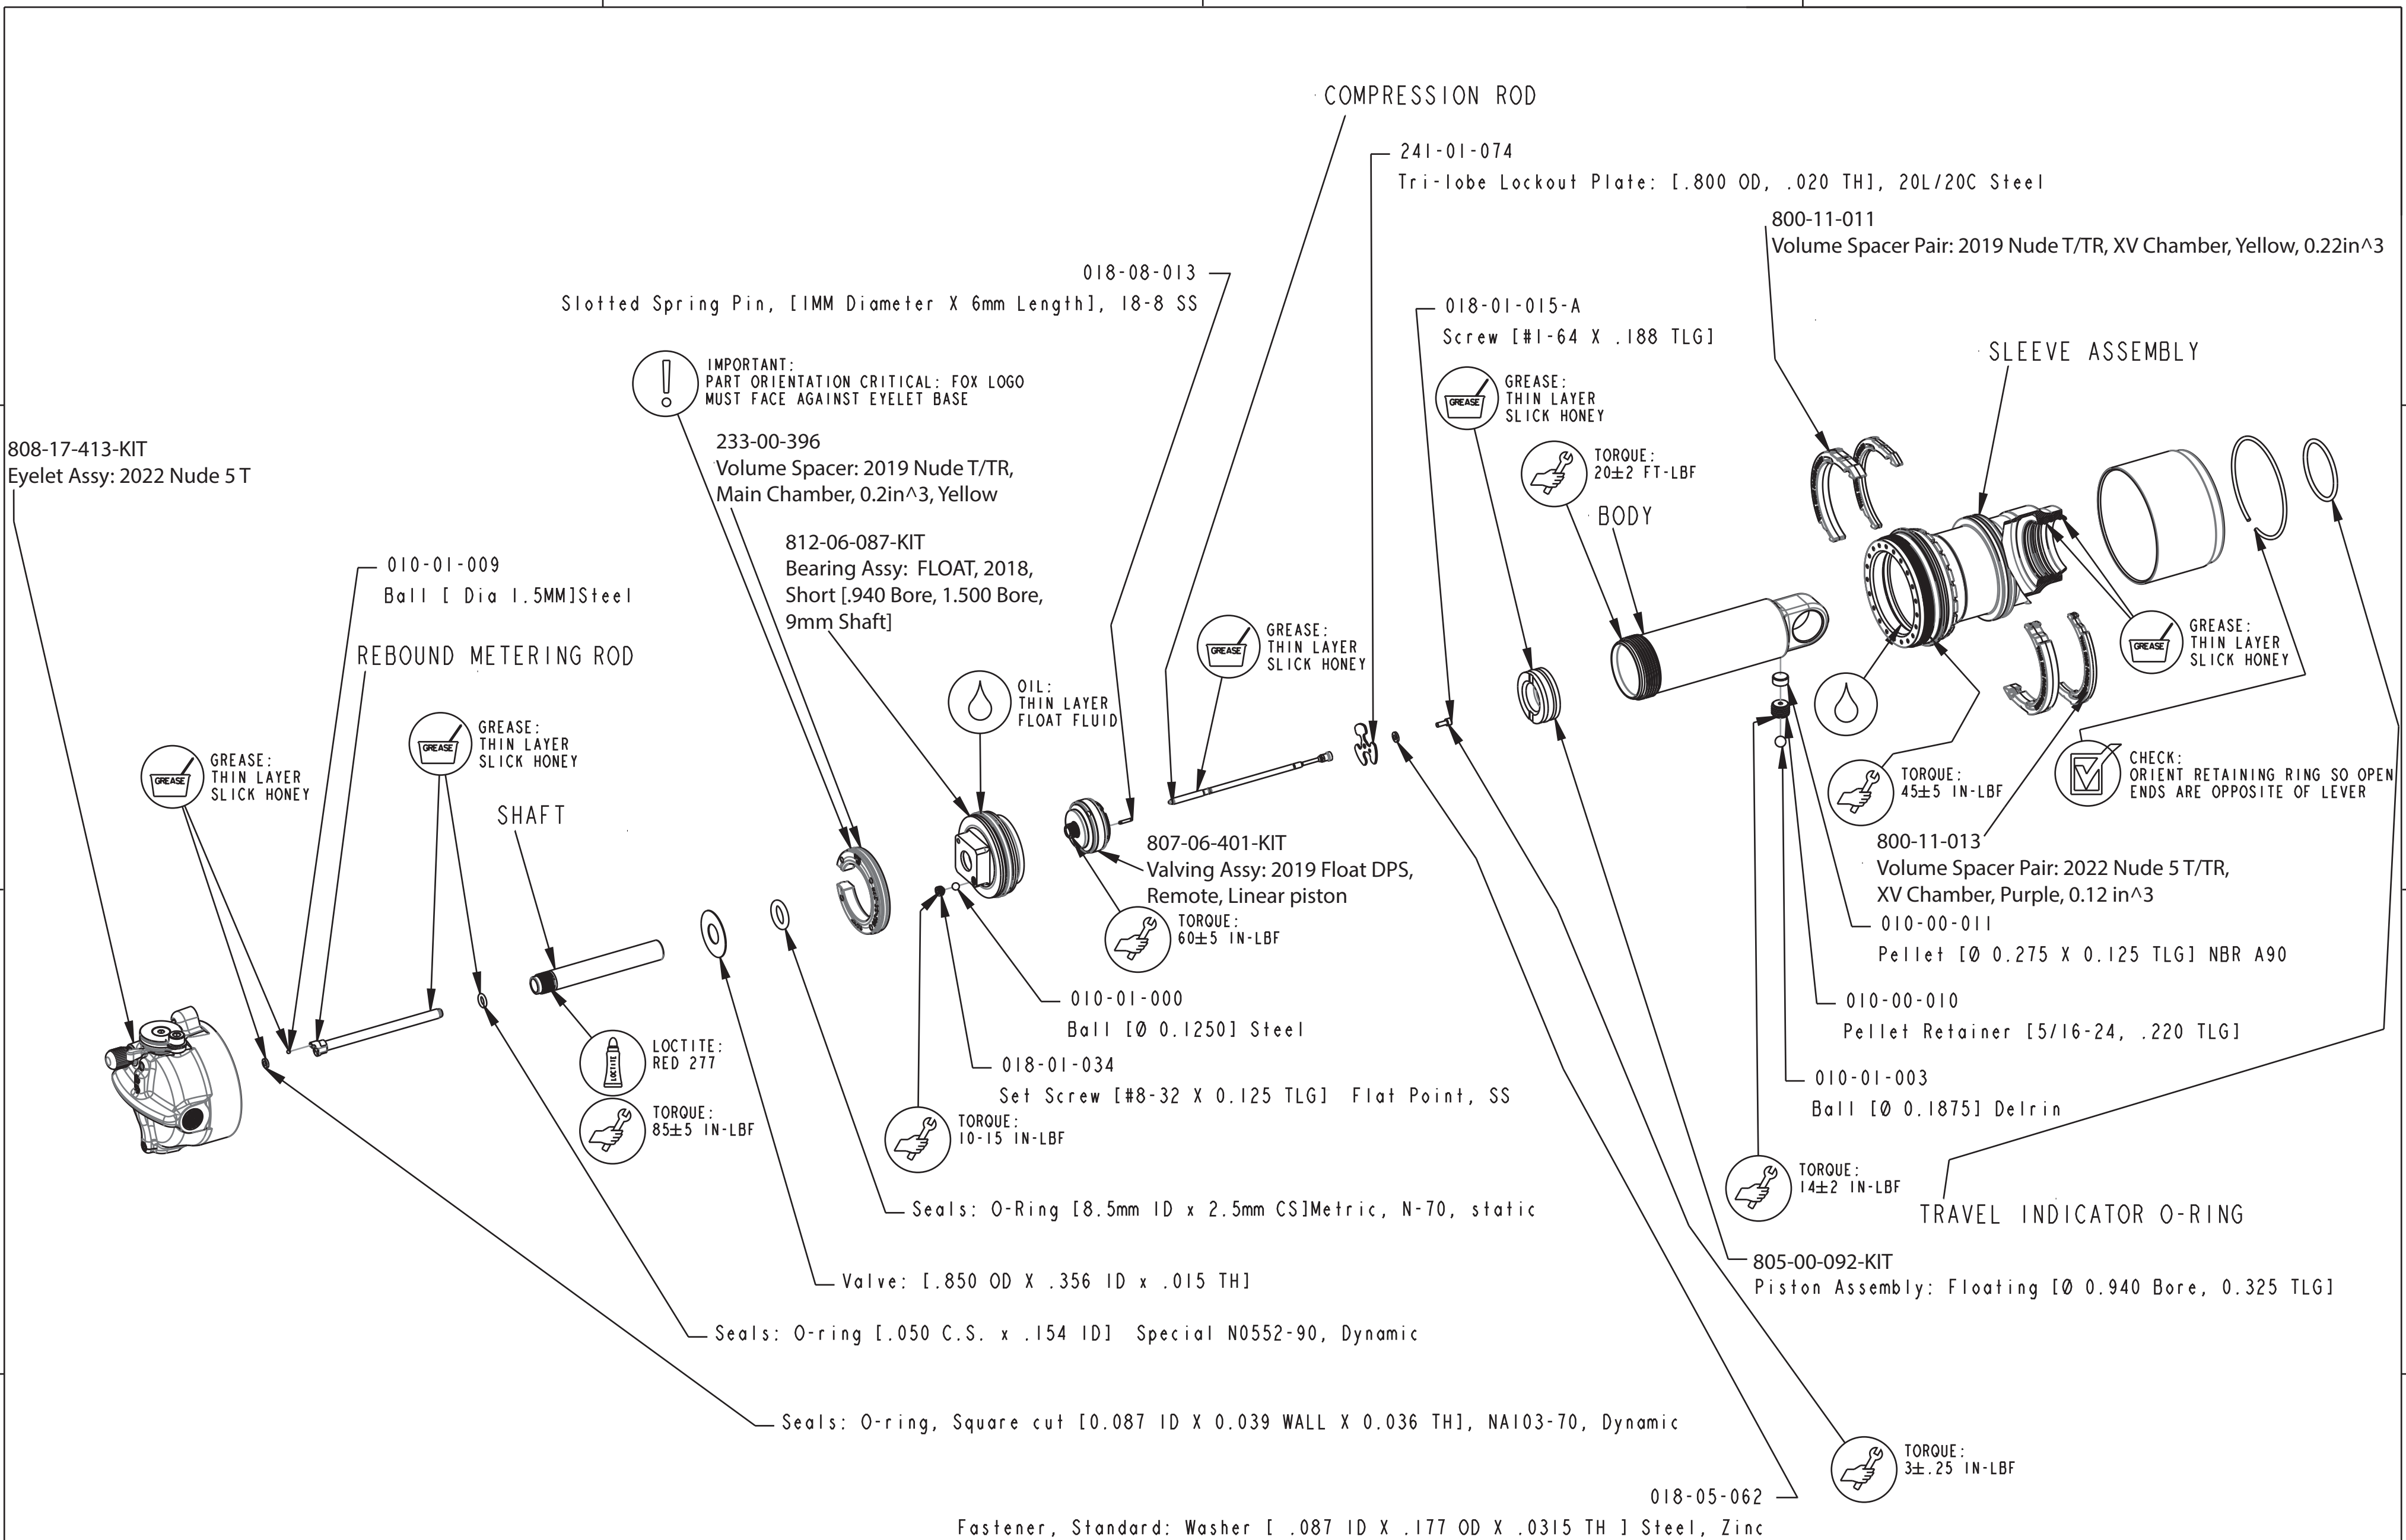 COMPRESSION ROD
241-01-074
Tri-lobe Lockout Plate: [.800 OD, .020 TH], 20L/20C Steel
800-11-011
Volume Spacer Pair: 2019 Nude T/TR, XV Chamber, Yellow, 0.22in^3
018-08-013
Slotted Spring Pin, [1MM Diameter X 6mm Length], 18-8 SS
018-01-015-A
Screw [#1-64 X .188 TLG]
SLEEVE ASSEMBLY
IMPORTANT:
PART ORIENTATION CRITICAL: FOX LOGO
MUST FACE AGAINST EYELET BASE
GREASE
GREASE:
THIN LAYER
SLICK HONEY
808-17-413-KIT
Eyelet Assy: 2022 Nude 5 T
233-00-396
Volume Spacer: 2019 Nude T/TR,
Main Chamber, 0.2in^3, Yellow
TORQUE:
20±2 FT-LBF
BODY
812-06-087-KIT
Bearing Assy: FLOAT, 2018,
Short [.940 Bore, 1.500 Bore,
9mm Shaft]
010-01-009
Ball [ Dia 1.5MM]Steel
REBOUND METERING ROD
GREASE
GREASE:
THIN LAYER
SLICK HONEY
GREASE
GREASE:
THIN LAYER
SLICK HONEY
OIL:
THIN LAYER
FLOAT FLUID
GREASE
GREASE:
THIN LAYER
SLICK HONEY
GREASE
GREASE:
THIN LAYER
SLICK HONEY
TORQUE:
45±5 IN-LBF
CHECK:
ORIENT RETAINING RING SO OPEN
ENDS ARE OPPOSITE OF LEVER
SHAFT
807-06-401-KIT
Valving Assy: 2019 Float DPS,
Remote, Linear piston
TORQUE:
60±5 IN-LBF
800-11-013
Volume Spacer Pair: 2022 Nude 5 T/TR,
XV Chamber, Purple, 0.12 in^3
010-00-011
Pellet [Ø 0.275 X 0.125 TLG] NBR A90
010-01-000
Ball [Ø 0.1250] Steel
010-00-010
Pellet Retainer [5/16-24, .220 TLG]
LOCTITE
LOCTITE:
RED 277
TORQUE:
85±5 IN-LBF
018-01-034
Set Screw [#8-32 X 0.125 TLG] Flat Point, SS
TORQUE:
10-15 IN-LBF
010-01-003
Ball [Ø 0.1875] Delrin
TORQUE:
14±2 IN-LBF
TRAVEL INDICATOR O-RING
Seals: O-Ring [8.5mm ID x 2.5mm CS]Metric, N-70, static
805-00-092-KIT
Piston Assembly: Floating [Ø 0.940 Bore, 0.325 TLG]
Valve: [.850 OD X .356 ID x .015 TH]
Seals: O-ring [.050 C.S. x .154 ID] Special N0552-90, Dynamic
Seals: O-ring, Square cut [0.087 ID X 0.039 WALL X 0.036 TH], NA103-70, Dynamic
TORQUE:
3±.25 IN-LBF
018-05-062
Fastener, Standard: Washer [ .087 ID X .177 OD X .0315 TH ] Steel, Zinc